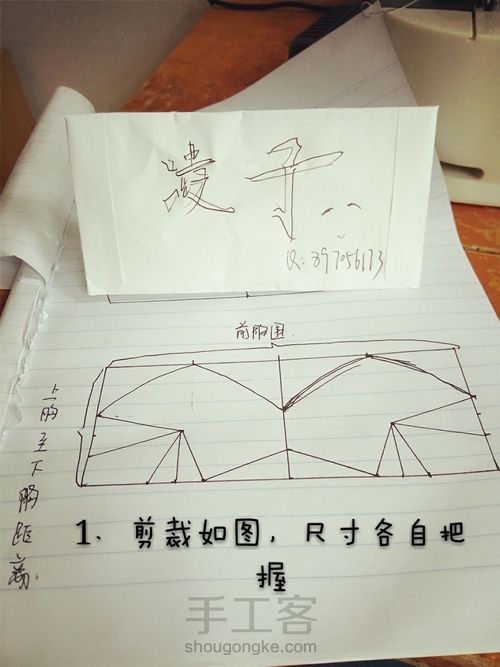 子
Q: 397056173
前胸围
上胸至下胸距离.
1. 剪裁如图, 尺寸各自把
握
手工客
shougongke.com